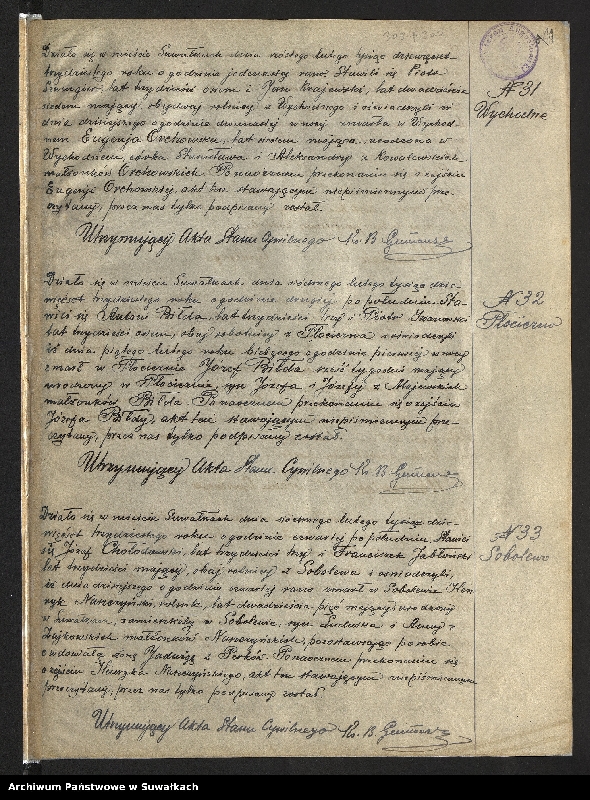 Działo się w mieście Suwałkach dnia szóstego lutego tysiąc dziewięćset
trzydziestego roku o godzinie jedenastej rano. Stawili się Piotr
lat trzydzieści ośm i Jan Krajewski, lat dwadzieścia
siedem mający, obydwaj rolnicy z Wychodnego i oświadczyli że
dnia dzisiejszego o godzinie dwunastej w nocy zmarła w Wychod-
nem Eugenja Orchowska, lat mająca, urodzona w
Wychodnem, córka Stanisława i Aleksandry z
małżonków Orchowskich. Po naocznem przekonaniu się o zejściu
Eugenji Orchowskiej, akt ten stawającym niepiśmiennym prze-
czytany, przez nas tylko podpisany został.
Utrzymujący Akta Stanu Cywilnego Ks. B.
N 31
Wychodne
Działo się w mieście Suwałkach dnia siódmego lutego tysiąc dzie-
więćset trzydziestego roku o godzinie drugiej po południu. Sta-
wili się Bilda, lat trzydzieści trzy i Piotr Iwanowski
lat trzydzieści ośm, obaj robotnicy z Płociczna i oświadczyli
że dnia piątego lutego roku bieżącego o godzinie pierwszej w nocy
zmarł w Płocicznie Józef Bilda sześć tygodni mający
urodzony w Płocicznie, syn Józefa i Józefy z Majewskich
małżonków Bilda. Po naocznem przekonaniu się o zejściu
Józefa Bildy, akt ten stawającym niepiśmiennym prze-
czytany, przez nas tylko podpisany został.
Utrzymujący Akta Stanu Cywilnego Ks. B.
N 32
Płociczno
Działo się w mieście Suwałkach dnia siódmego lutego tysiąc dzie-
więćset trzydziestego roku o godzinie czwartej po południu. Stawili
się Józef lat trzydzieści trzy i Franciszek Jabłoński
lat trzydzieści mający, obaj rolnicy z Sobolewa i oświadczyli,
że dnia dzisiejszego o godzinie czwartej rano zmarł w Sobolewie Hen-
ryk rolnik, lat dwadzieścia pięć mający, urodzony
w zamieszkały w Sobolewie, syn Ludwika i
małżonków pozostawiając po sobie
owdowiałą żonę Jadwigę z Po naocznem przekonaniu się
o zejściu Henryka akt ten stawającym niepiśmiennym
przeczytany, przez nas tylko podpisany został.
Utrzymujący Akta Stanu Cywilnego Ks. B.
N 33
Sobolewo
Archiwum Państwowe w Suwałkach